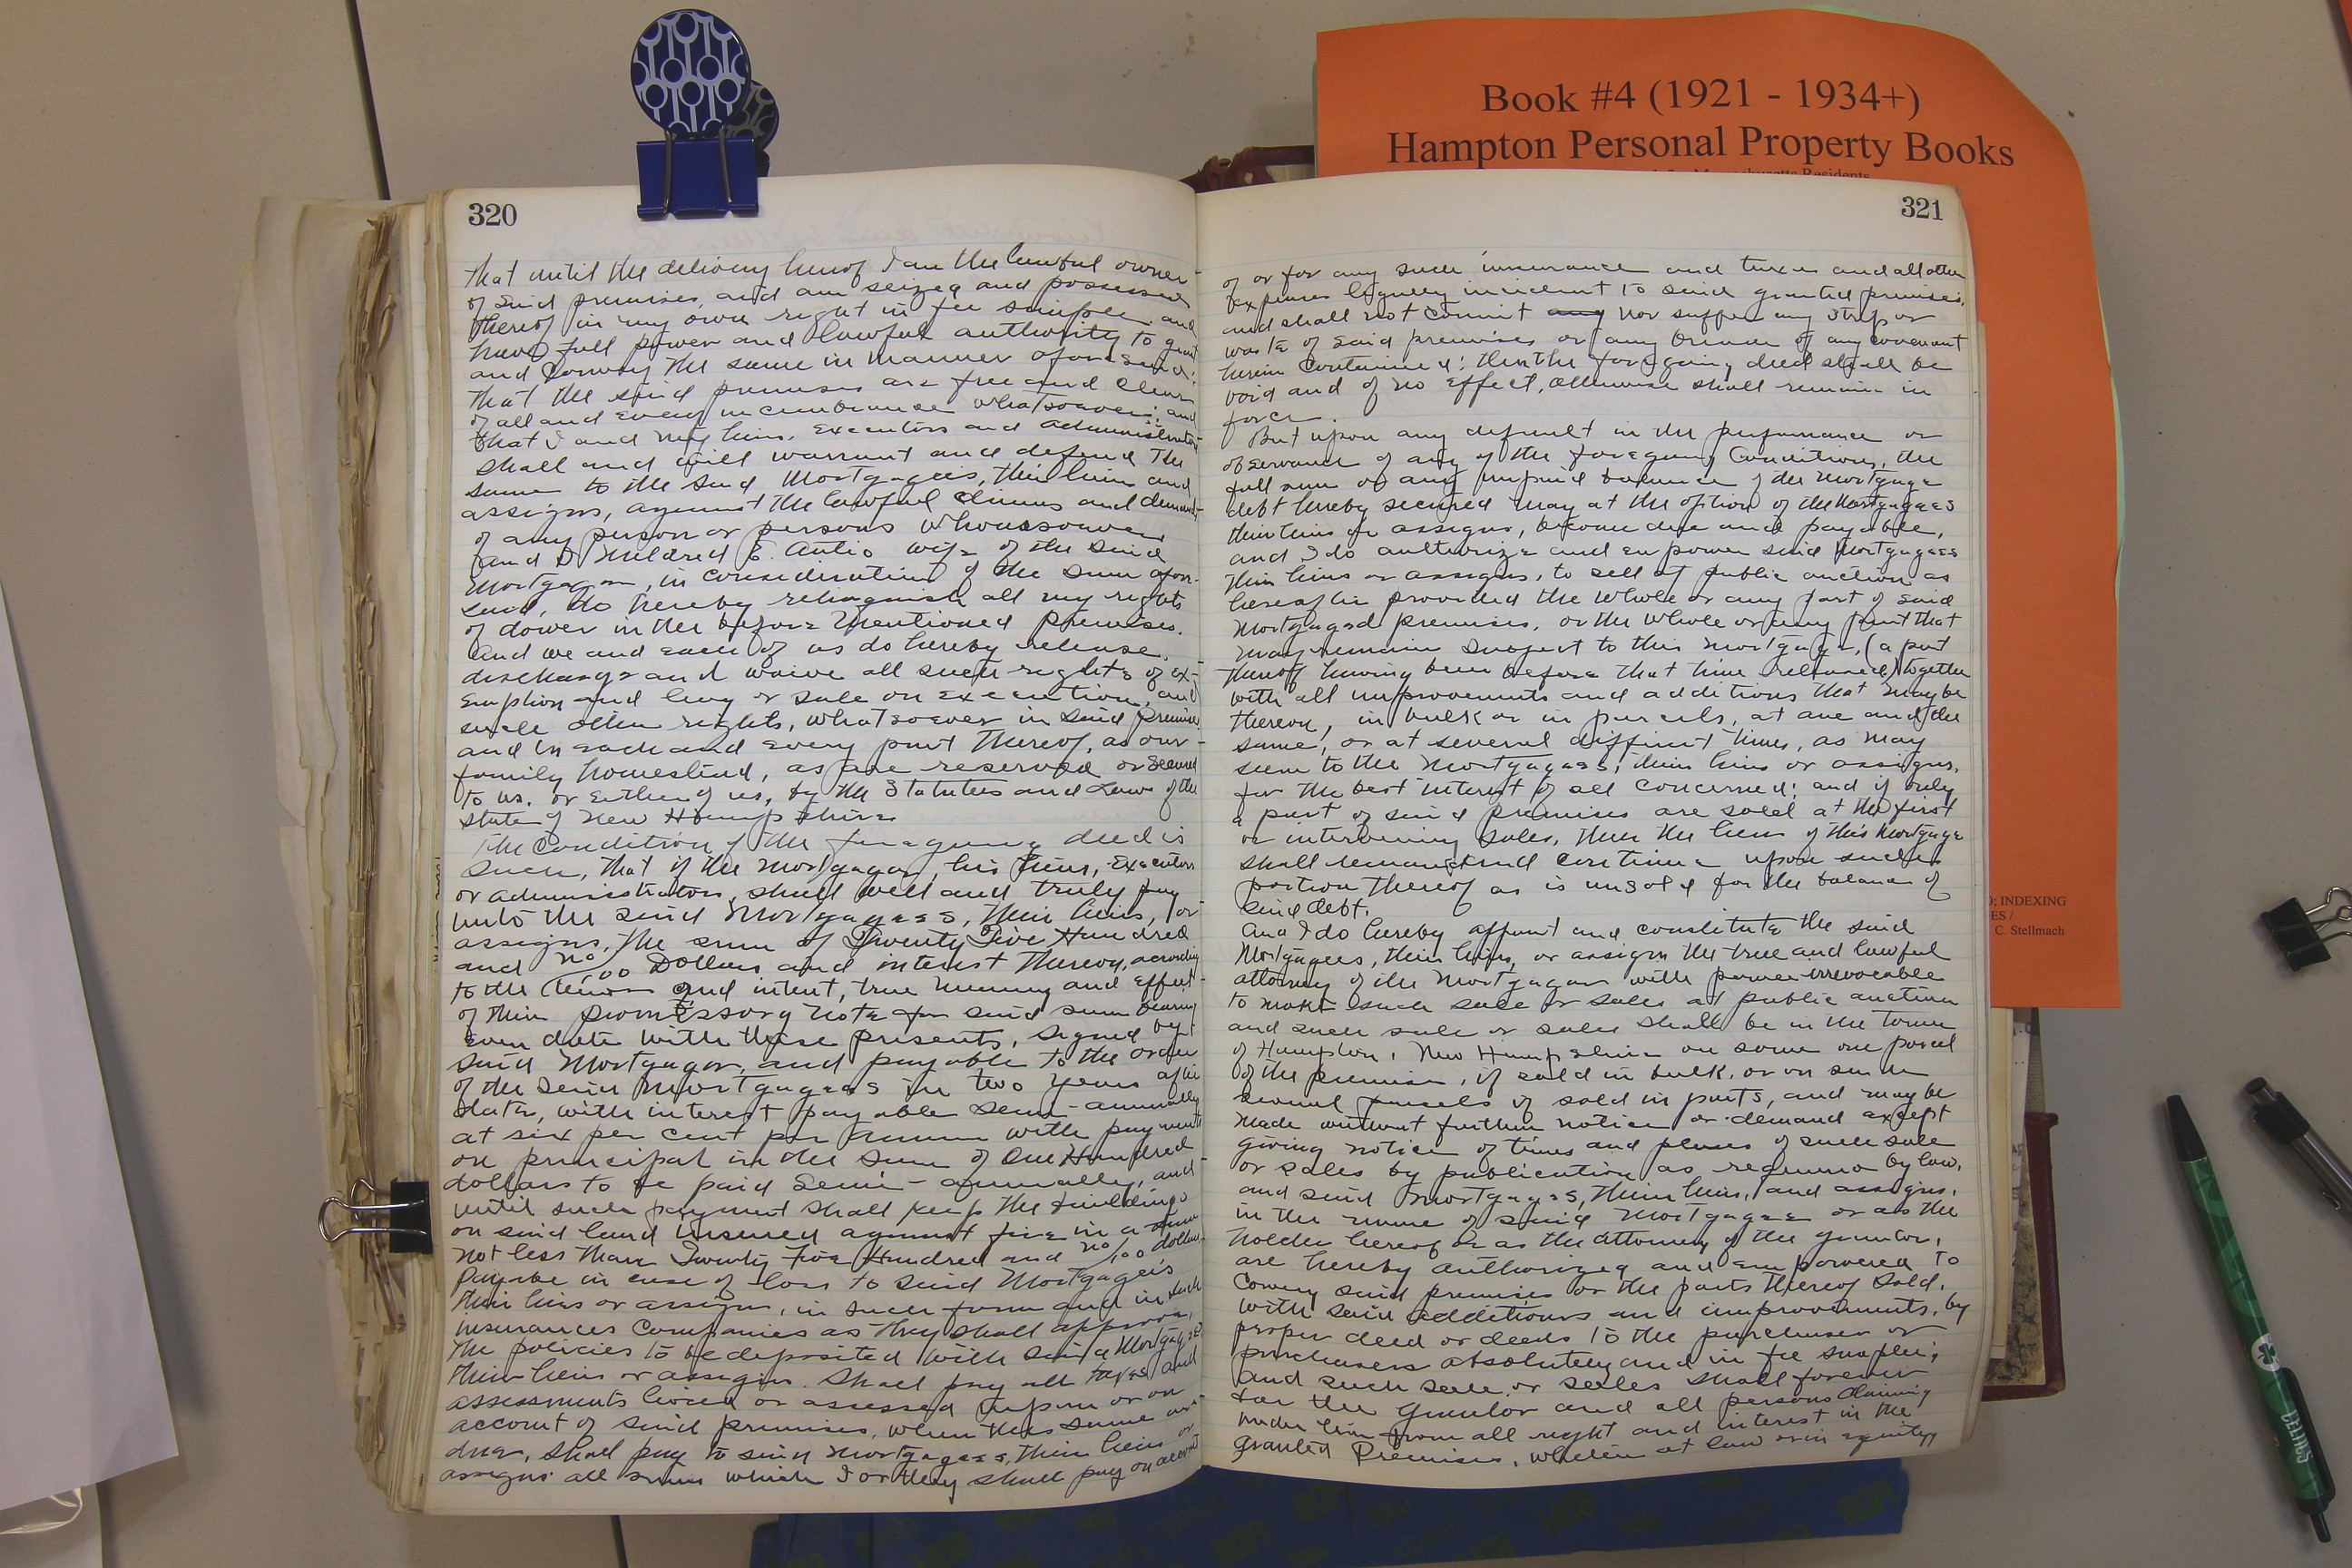 Book #4 (1921 - 1934+)
Hampton Personal Property Books
Massachusetts Residents
INDEXING
C. Stellmach
320
that until the delivery hereof I am the lawful owner
of said premises, and am seized and possessed
thereof in my own right in fee simple, and
have full power and lawful authority to grant
and Convey the same in manner aforesaid;
that the said premises are free and clear
of all and every incumbrance whatsoever; and
that I and my heirs, executors and administrators
shall and will warrant and defend the
same to the said Mortgagees, their heirs and
assigns, against the lawful claims and demands
of any person or persons whomsoever
And I Mildred E. wife of the said
Mortgagor, in consideration of the sum afore-
said, do hereby relinquish all my rights
of dower in the before mentioned premises.
And we and each of us do hereby release,
discharge and waive all such rights of ex-
emption and levy or sale on execution, and
such other rights, whatsoever in said premises
and in each and every part thereof, as our
family homestead, as are reserved or secured
to us, or either of us, by the Statutes and Laws of the
State of New Hampshire
The Condition of the foregoing deed is
such, that if the Mortgagor, his heirs, Executors
or administrators, shall well and truly pay
unto the said Mortgagees, their heirs, or
assigns, the sum of Twenty Five Hundred
and no/100 Dollars and interest thereon, according
to the tenor and intent, true meaning and effect
of their promissory note for said sum bearing
even date with these presents, signed by
said Mortgagor, and payable to the order
of the said Mortgagees in two years after
date, with interest payable semi-annually
at six per cent per annum with payments
on principal in the sum of One Hundred
dollars to be paid Semi-annually, and
until such payment shall keep the buildings
on said land insured against fire in a sum
not less than Twenty Five Hundred and no/100 dollars
Payable in case of loss to said Mortgagees
their heirs or assigns, in such form and in such
insurances Companies as they shall approve,
the policies to be deposited with said Mortgagees
their heirs or assigns. Shall pay all taxes and
assessments levied or assessed upon or on
account of said premises, when the same are
due, shall pay to said Mortgagees, their heirs or
assigns all sums which I or they shall pay on account
321
of or for any such insurance and taxes and all other
expenses legally incident to said granted premises,
and shall not commit any nor suffer any strip or
waste of said premises or any breach of any covenant
herein contained; then the foregoing deed shall be
void and of no effect, otherwise shall remain in
force.
But upon any default in the performance or
observance of any of the foregoing Conditions, the
full sum or any unpaid balance of the Mortgage
debt hereby secured may at the option of the Mortgagees
their heirs or assigns, become due and payable,
and I do authorize and empower said Mortgagees
their heirs or assigns, to sell at public auction as
hereafter provided the whole or any part of said
Mortgaged premises, or the whole or any part that
may remain subject to this Mortgage, (a part
thereof having been before that time released) together
with all improvements and additions that may be
thereon, in bulk or in parcels, at one and the
same, or at several different times, as may
seem to the Mortgagees, their heirs or assigns,
for the best interest of all concerned; and if only
a part of said premises are sold at the first
or intervening sales, then the lien of this Mortgage
shall remain and continue upon such
portion thereof as is unsold for the balance of
said debt.
And I do hereby appoint and constitute the said
Mortgagees, their heirs, or assigns the true and lawful
attorney of the Mortgagor with power irrevocable
to make such sale or sales at public auction
and such sale or sales shall be in the town
of Hampton, New Hampshire on some one parcel
of the premises, if sold in bulk, or on
several parcels if sold in parts, and may be
made without further notice or demand except
giving notice of times and places of such sale
or sales by publication as required by law,
and said Mortgagees, their heirs, and assigns,
in the name of said Mortgagees or as the
holder hereof or as the attorney of the grantor,
are hereby authorized and empowered to
convey said premises or the parts thereof sold,
with said additions and improvements, by
proper deed or deeds to the purchaser or
purchasers absolutely and in fee simple;
and such sale or sales shall forever
bar the grantor and all persons claiming
under him from all right and interest in the
granted Premises, whether at law or in equity